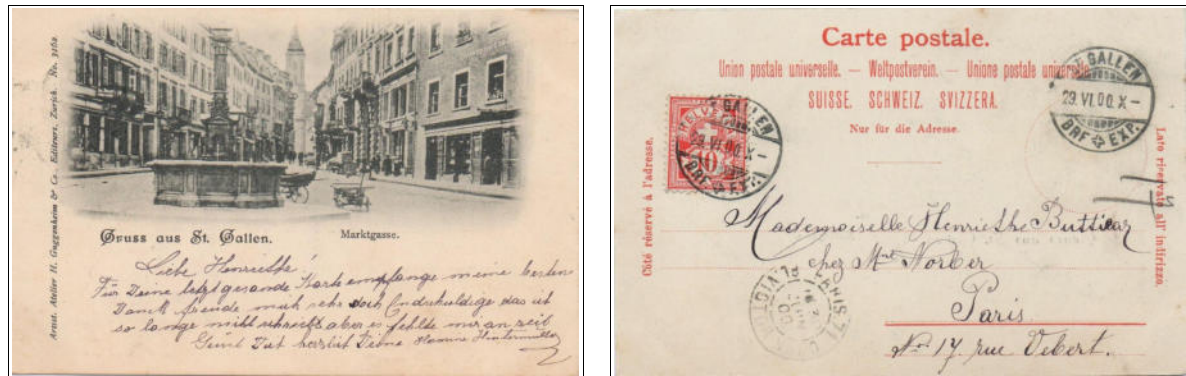 Artist. Atelier H. Guggenheim & Co. Editeurs, Zurich. No. 3162.
Gruss aus St. Gallen.
Marktgasse.
Liebe Henriethe!
Für Deine letzt gesande Karte empfange meine besten
Danck freude mich sehr doch Endschuldige das ich
so lange nicht schrieb aber es fehlte mir an zeit
Grüst Dich herzlich Deine Hintermüller
Carte postale.
Union postale universelle. — Weltpostverein. — Unione postale universale
SUISSE. SCHWEIZ. SVIZZERA.
Nur für die Adresse.
Côté réservé à l'adresse.
Lato riservato all' indirizzo.
HELVETIA
10
ST. GALLEN
29.VI.00.X–
BRF. EXP.
ST. GALLEN
29.VI.00.X–
BRF. EXP.
Mademoiselle Henriethe Butticaz
chez Mme Norber
Paris
No 17. rue
PARIS